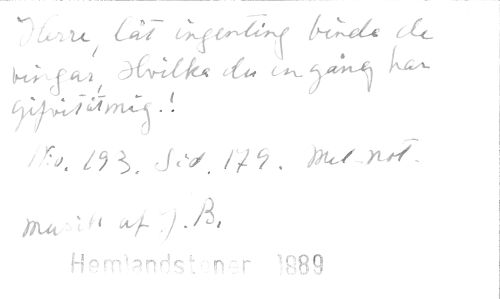 Herre, låt ingenting binda de
vingar, Hvilka du en gång har
gifvit åt mig.!
No. 193. Sid. 179. Mel. not.
musik af J. B.
Hemlandstoner 1889